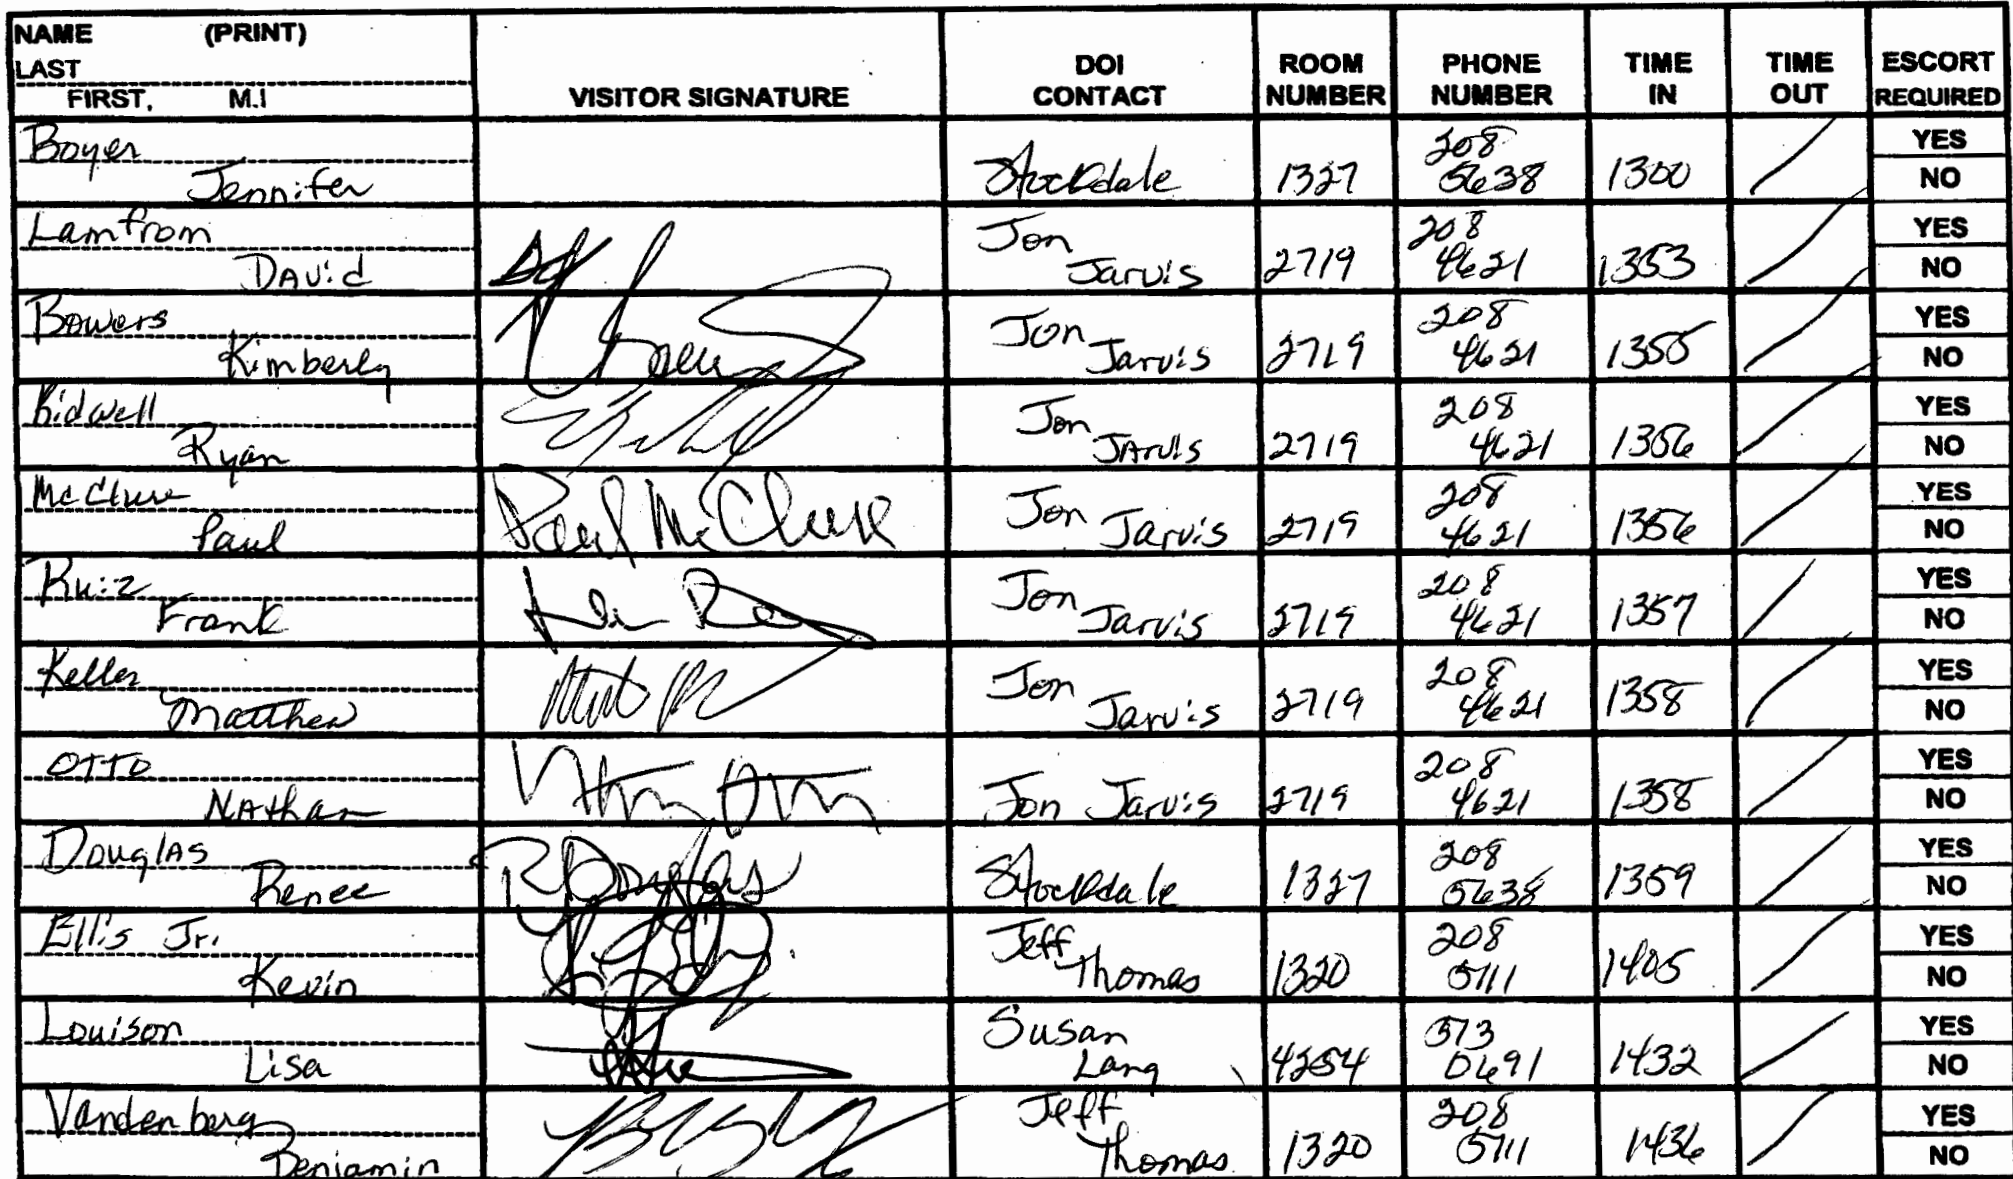 NAME (PRINT)
LAST
FIRST, M.I
VISITOR SIGNATURE
DOI CONTACT
ROOM NUMBER
PHONE NUMBER
TIME IN
TIME OUT
ESCORT REQUIRED
Boyer
Jennifer
Stockdale 1327 208 5638 1300 YES NO
Lamfrom
David
Jon Jarvis 2719 208 4621 1353 YES NO
Bowers
Kimberly
Jon Jarvis 2719 208 4621 1355 YES NO
Kidwell
Ryan
Jon Jarvis 2719 208 4621 1356 YES NO
McClure
Paul
Paul McClure
Jon Jarvis 2719 208 4621 1356 YES NO
Ruiz
Frank
Jon Jarvis 2719 208 4621 1357 YES NO
Keller
Matthew
Jon Jarvis 2719 208 4621 1358 YES NO
OTTO
NAthan
Jon Jarvis 2719 208 4621 1358 YES NO
Douglas
Renee
R Douglas
Stockdale 1327 208 5638 1359 YES NO
Ellis Jr.
Kevin
Jeff Thomas 1320 208 5711 1405 YES NO
Louison
Lisa
Susan Lang 4254 513 0691 1432 YES NO
Vandenberg
Benjamin
Jeff Thomas 1320 208 5711 1436 YES NO